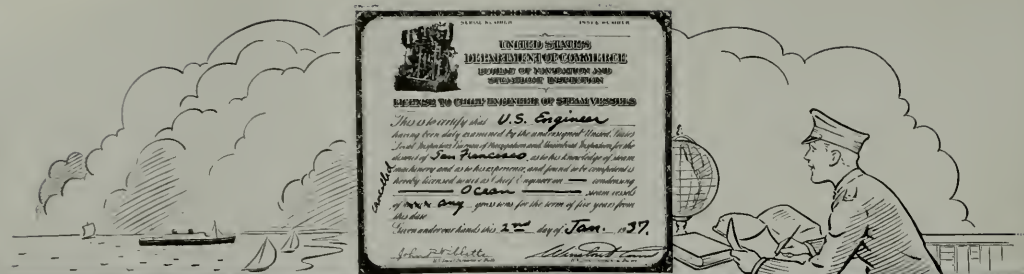 SERIAL NUMBER ISSUE NUMBER
UNITED STATES
DEPARTMENT OF COMMERCE
BUREAU OF NAVIGATION AND
STEAMBOAT INSPECTION
LICENSE TO CHIEF ENGINEER OF STEAM VESSELS
This is to certify that U.S. Engineer
having been duly examined by the undersigned United States
Local Inspectors Bureau of Navigation and Steamboat Inspection, for the
district of San Francisco, as to his knowledge of steam
machinery and as to his experience, and found to be competent is
hereby licensed to act as Chief Engineer on — condensing
Ocean steam vessels
of xxx any gross tons for the term of five years from
this date
Given under our hands this 2nd day of Jan. 1937.
cancelled
John